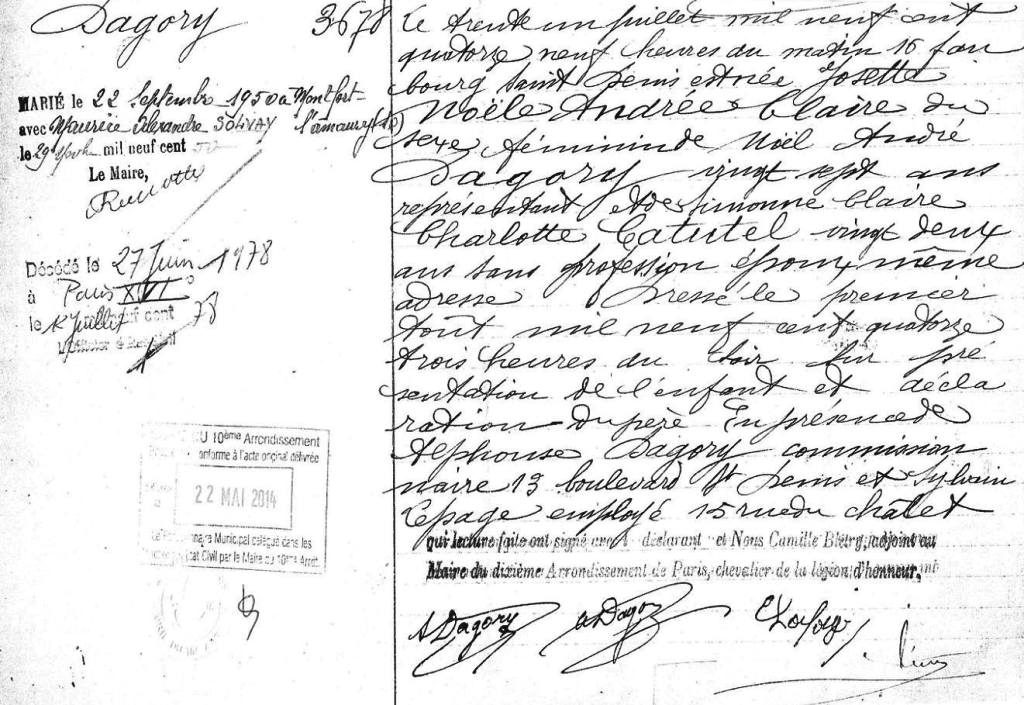 Dagory 3678
MARIÉ le 22 Septembre 1950 à Montfort-
avec Maurice Alexandre SOLIVAY l'amaury (S&O)
le 29 mil neuf cent
Le Maire,
Décédé le 27 Juin 1978
à Paris XVI
le 1er Juillet neuf cent 78
L'Officier d'Etat Civil
DU 10ème Arrondissement
conforme à l'acte original délivrée
22 MAI 2014
Le Fonctionnaire Municipal délégué dans les
d'Etat Civil par le Maire du 10ème Arrot.
Le trente un juillet mil neuf cent
quatorze neuf heures du matin 16 fau
bourg Saint Denis est née Josette
Noële Andrée Claire du
sexe féminin de Noël André
Dagory vingt sept ans
représentant et de Simonne Claire
Charlotte Catutel vingt deux
ans sans profession époux même
adresse Dressé le premier
août mil neuf cent quatorze
trois heures du soir sur pré
sentation de l'enfant et décla
ration du père En présence de
Alphonse Dagory commission
naire 13 boulevard St Denis et Sylvain
Lepage employé 15 rue du châlet
qui lecture faite ont signé avec le déclarant et Nous Camille Blétry, adjoint au
Maire du dixième Arrondissement de Paris, chevalier de la légion d'honneur.
A Dagory a Dagory